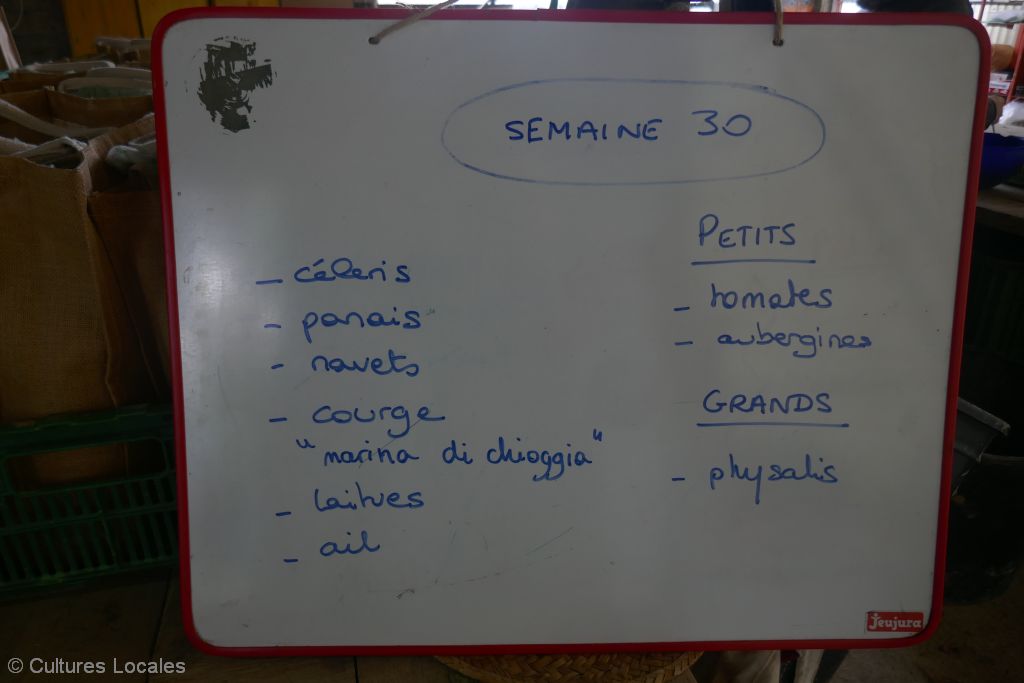 SEMAINE 30
- céleris
- panais
- navets
- courge
"marina di chioggia"
- laitues
- ail
PETITS
- tomates
- aubergines
GRANDS
- physalis
Jeujura
© Cultures Locales